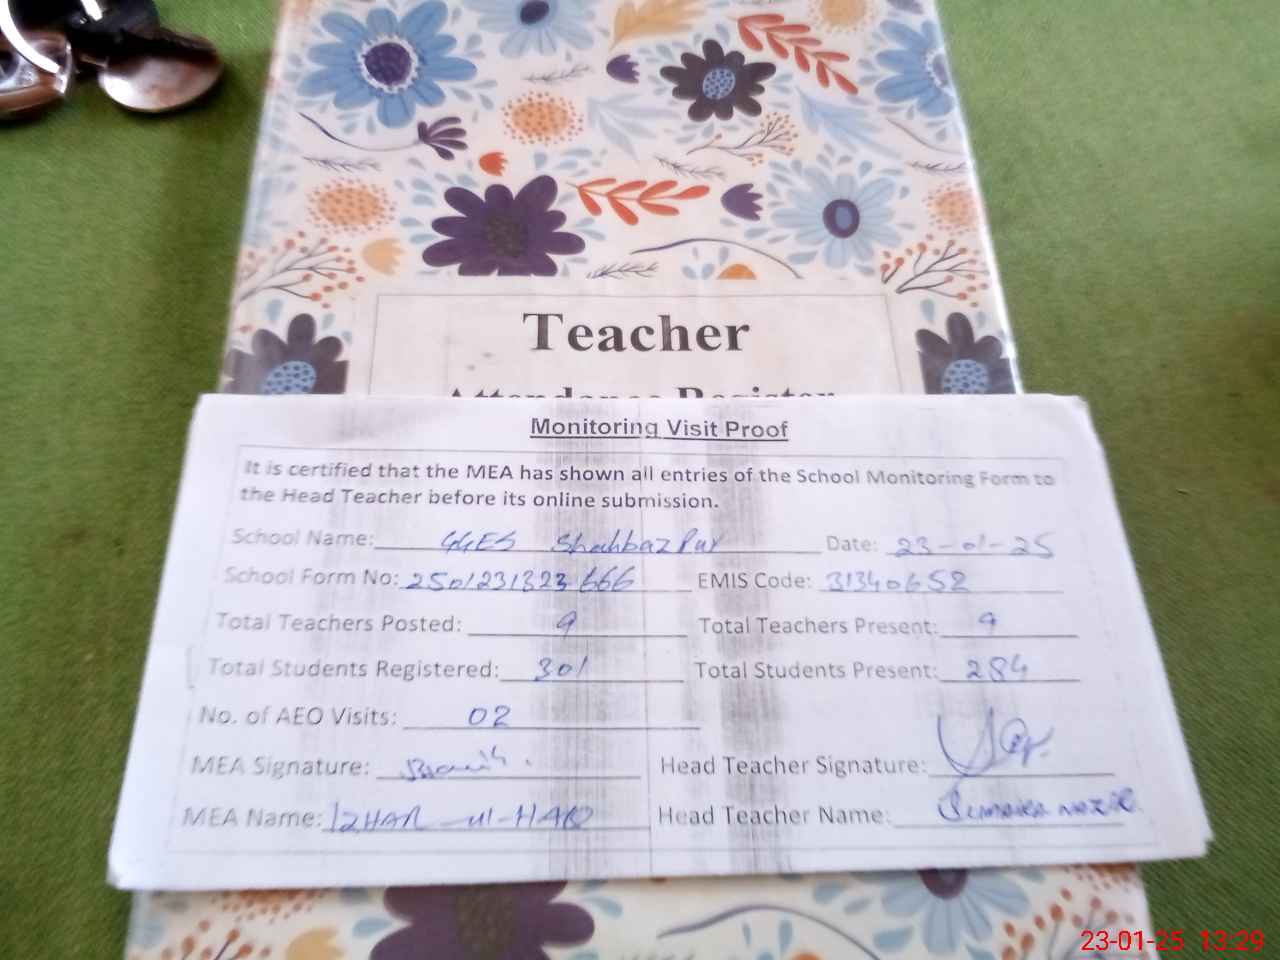 Teacher
Attendance Register
Monitoring Visit Proof
It is certified that the MEA has shown all entries of the School Monitoring Form to
the Head Teacher before its online submission.
School Name: GGES Shahbaz Pur Date: 23-01-25
School Form No: 2501231323666 EMIS Code: 31340652
Total Teachers Posted: 9 Total Teachers Present: 9
Total Students Registered: 301 Total Students Present: 284
No. of AEO Visits: 02
MEA Signature: Head Teacher Signature:
MEA Name: IZHAR-ul-HAQ Head Teacher Name: Sumaira
23-01-25 13:29